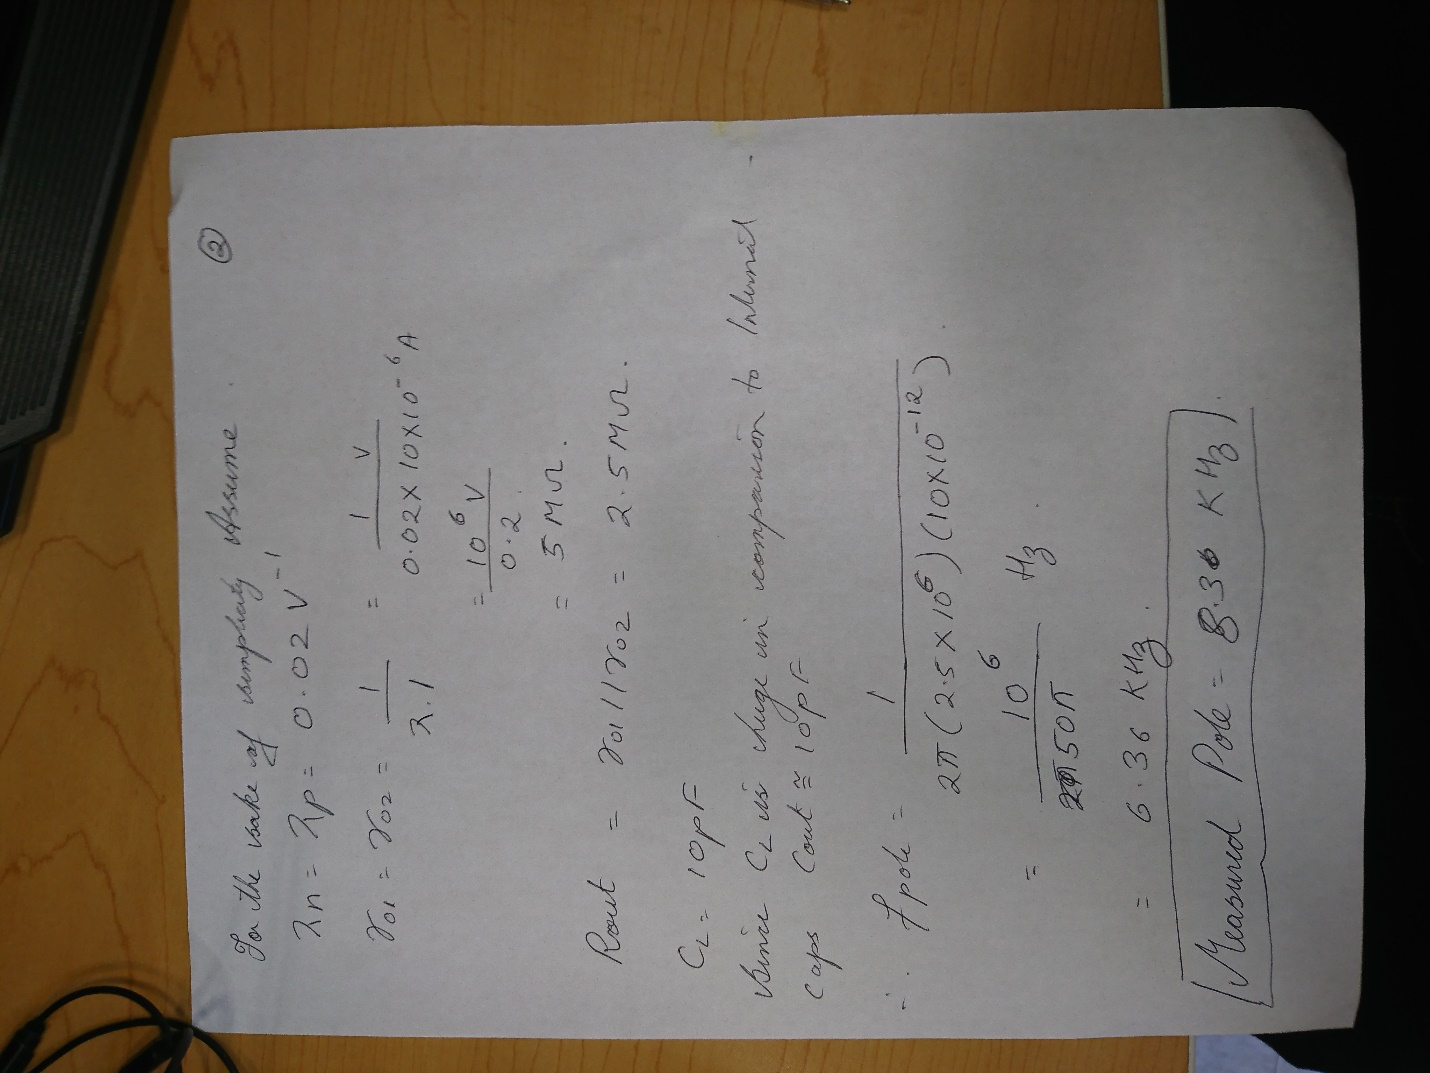 ②
For the sake of simplicity Assume.
λn = λp = 0.02 V⁻¹
r01 = r02 = 1/λ.I = 1 V/0.02×10×10⁻⁶A
= 10⁶ V/0.2.
= 5 MΩ.
Rout = r01||r02 = 2.5 MΩ.
CL = 10pF
Since CL is huge in comparison to Internal
caps Cout ≅ 10pF
∴ fpole = 1/2π(2.5×10⁶)(10×10⁻¹²).
= 10⁶/50π Hz.
= 6.36 KHz.
[Measured Pole = 8.36 KHz].